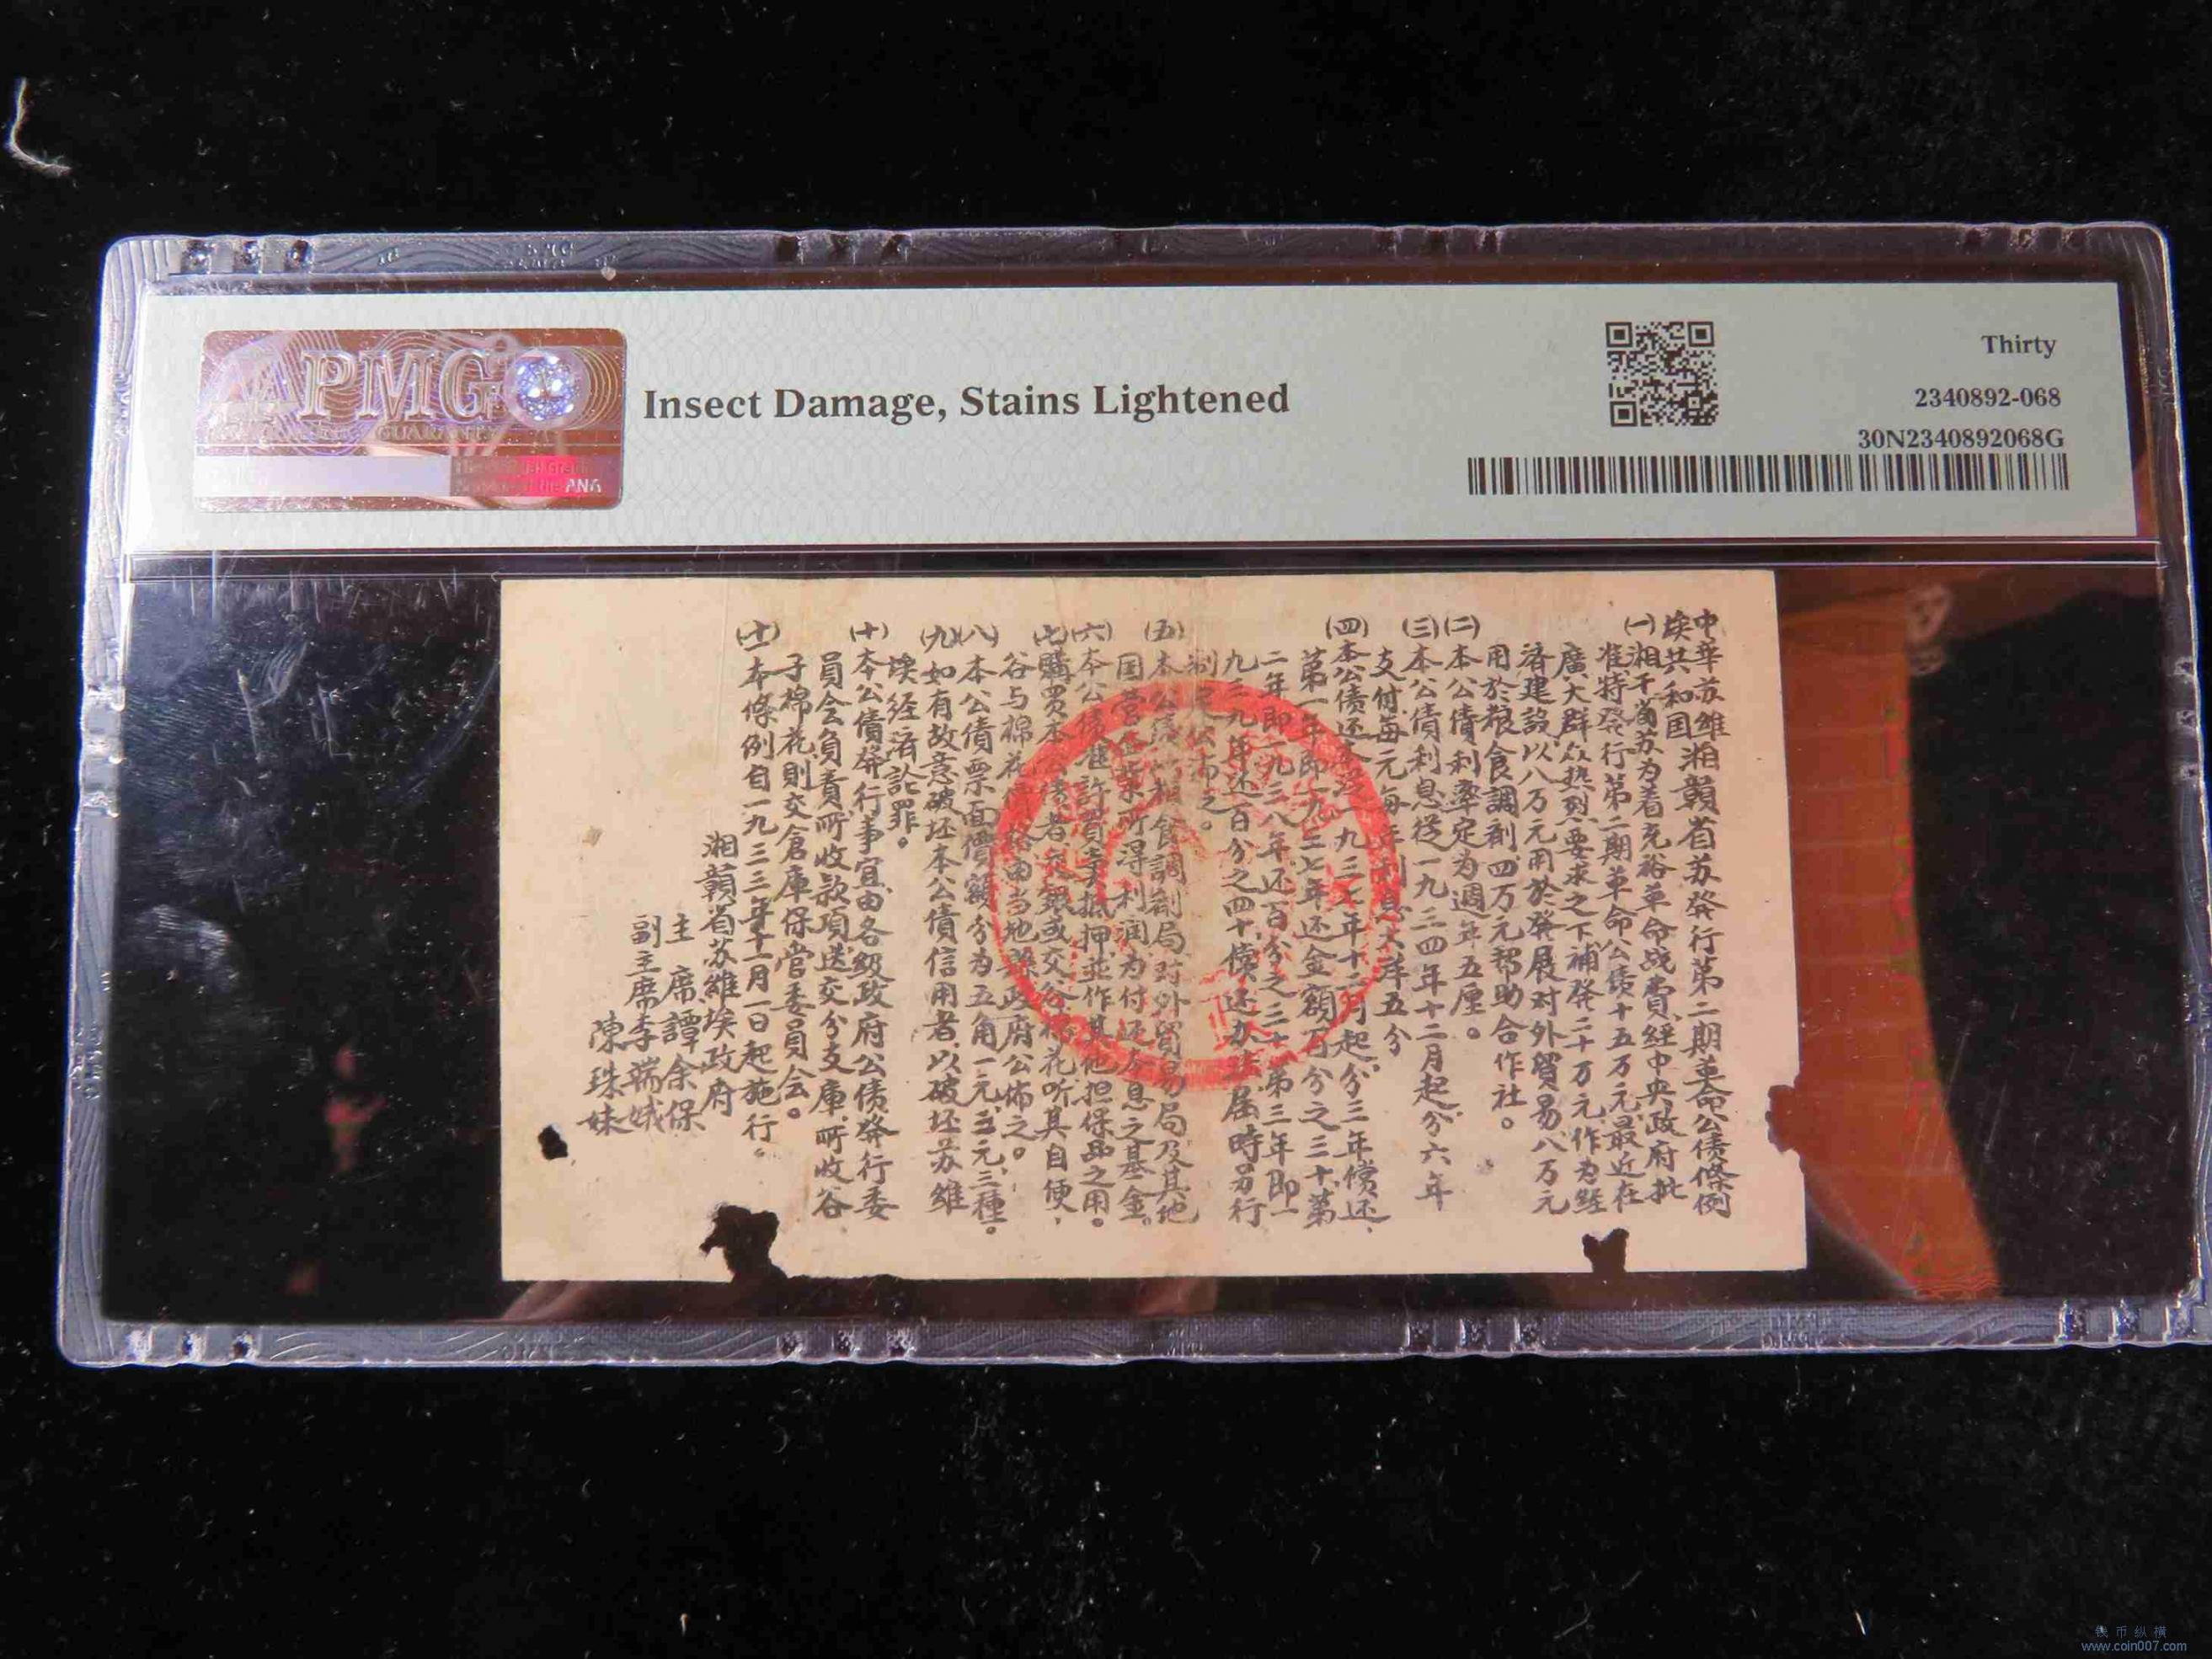 PMG
GUARANTY
ANA
Insect Damage, Stains Lightened
Thirty
2340892-068
30N2340892068G
中华苏维
埃共和国
湘贛省苏発行第二期革命公债條例
(一)湘干省苏为着充裕革命战费,経中央政府批
准,特発行第二期革命公债十五万元,最近在
廣大群众热烈要求之下補発二十万元,作为経
濟建設,以八万元用於発展对外貿易,八万元
用於粮食調剤,四万元帮助合作社。
(二)本公债利率定为週年五厘。
(三)本公债利息從一九三四年十二月起,分六年
支付,每元每年利息大洋五分
(四)本公债还本,一九三七年十二月起,分三年償还,
第一年即一九三七年还金額百分之三十,第
二年即一九三八年还百分之三十,第三年即一
九三九年还百分之四十,償还办法届時另行
制定公布之。
(五)本公债粮食調剤局,对外貿易局及其他
国营企業所得利润为付还本息之基金。
(六)本公债准許買賣抵押,並作其他担保品之用。
(七)購买本公债者,交銀或交谷棉花听其自便,
谷与棉花價格由当地縣政府公佈之。
(八)本公债票面價額分为五角,一元,二元,三種。
(九)如有故意破坯本公债信用者,以破坯苏維
埃経濟論罪。
(十)本公债発行事宜,由各級政府公债発行委
員会負責,所收款項送交分支庫,所收谷
子棉花則交倉庫保营委員会。
(十一)本條例自一九三三年十一月一日起施行。
湘贛省苏維埃政府
主席譚余保
副主席李端娥
陳珠妹
钱币纵横
www.coin007.com